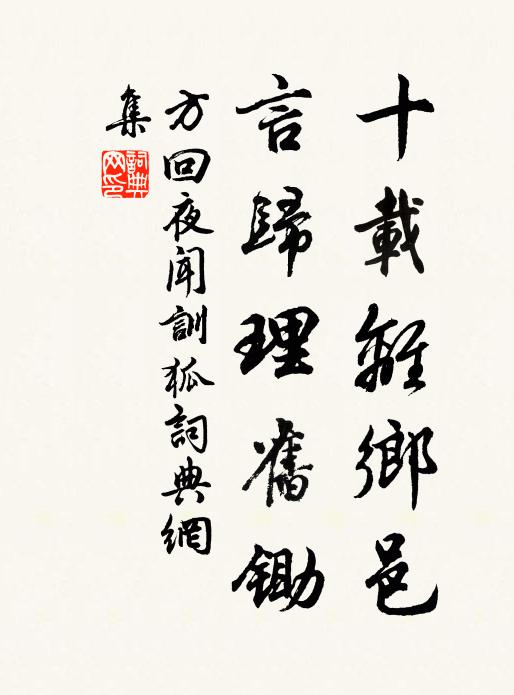 十載離鄉邑
言歸理舊鋤
方回夜聞訓狐詞典網
集
詞典網印